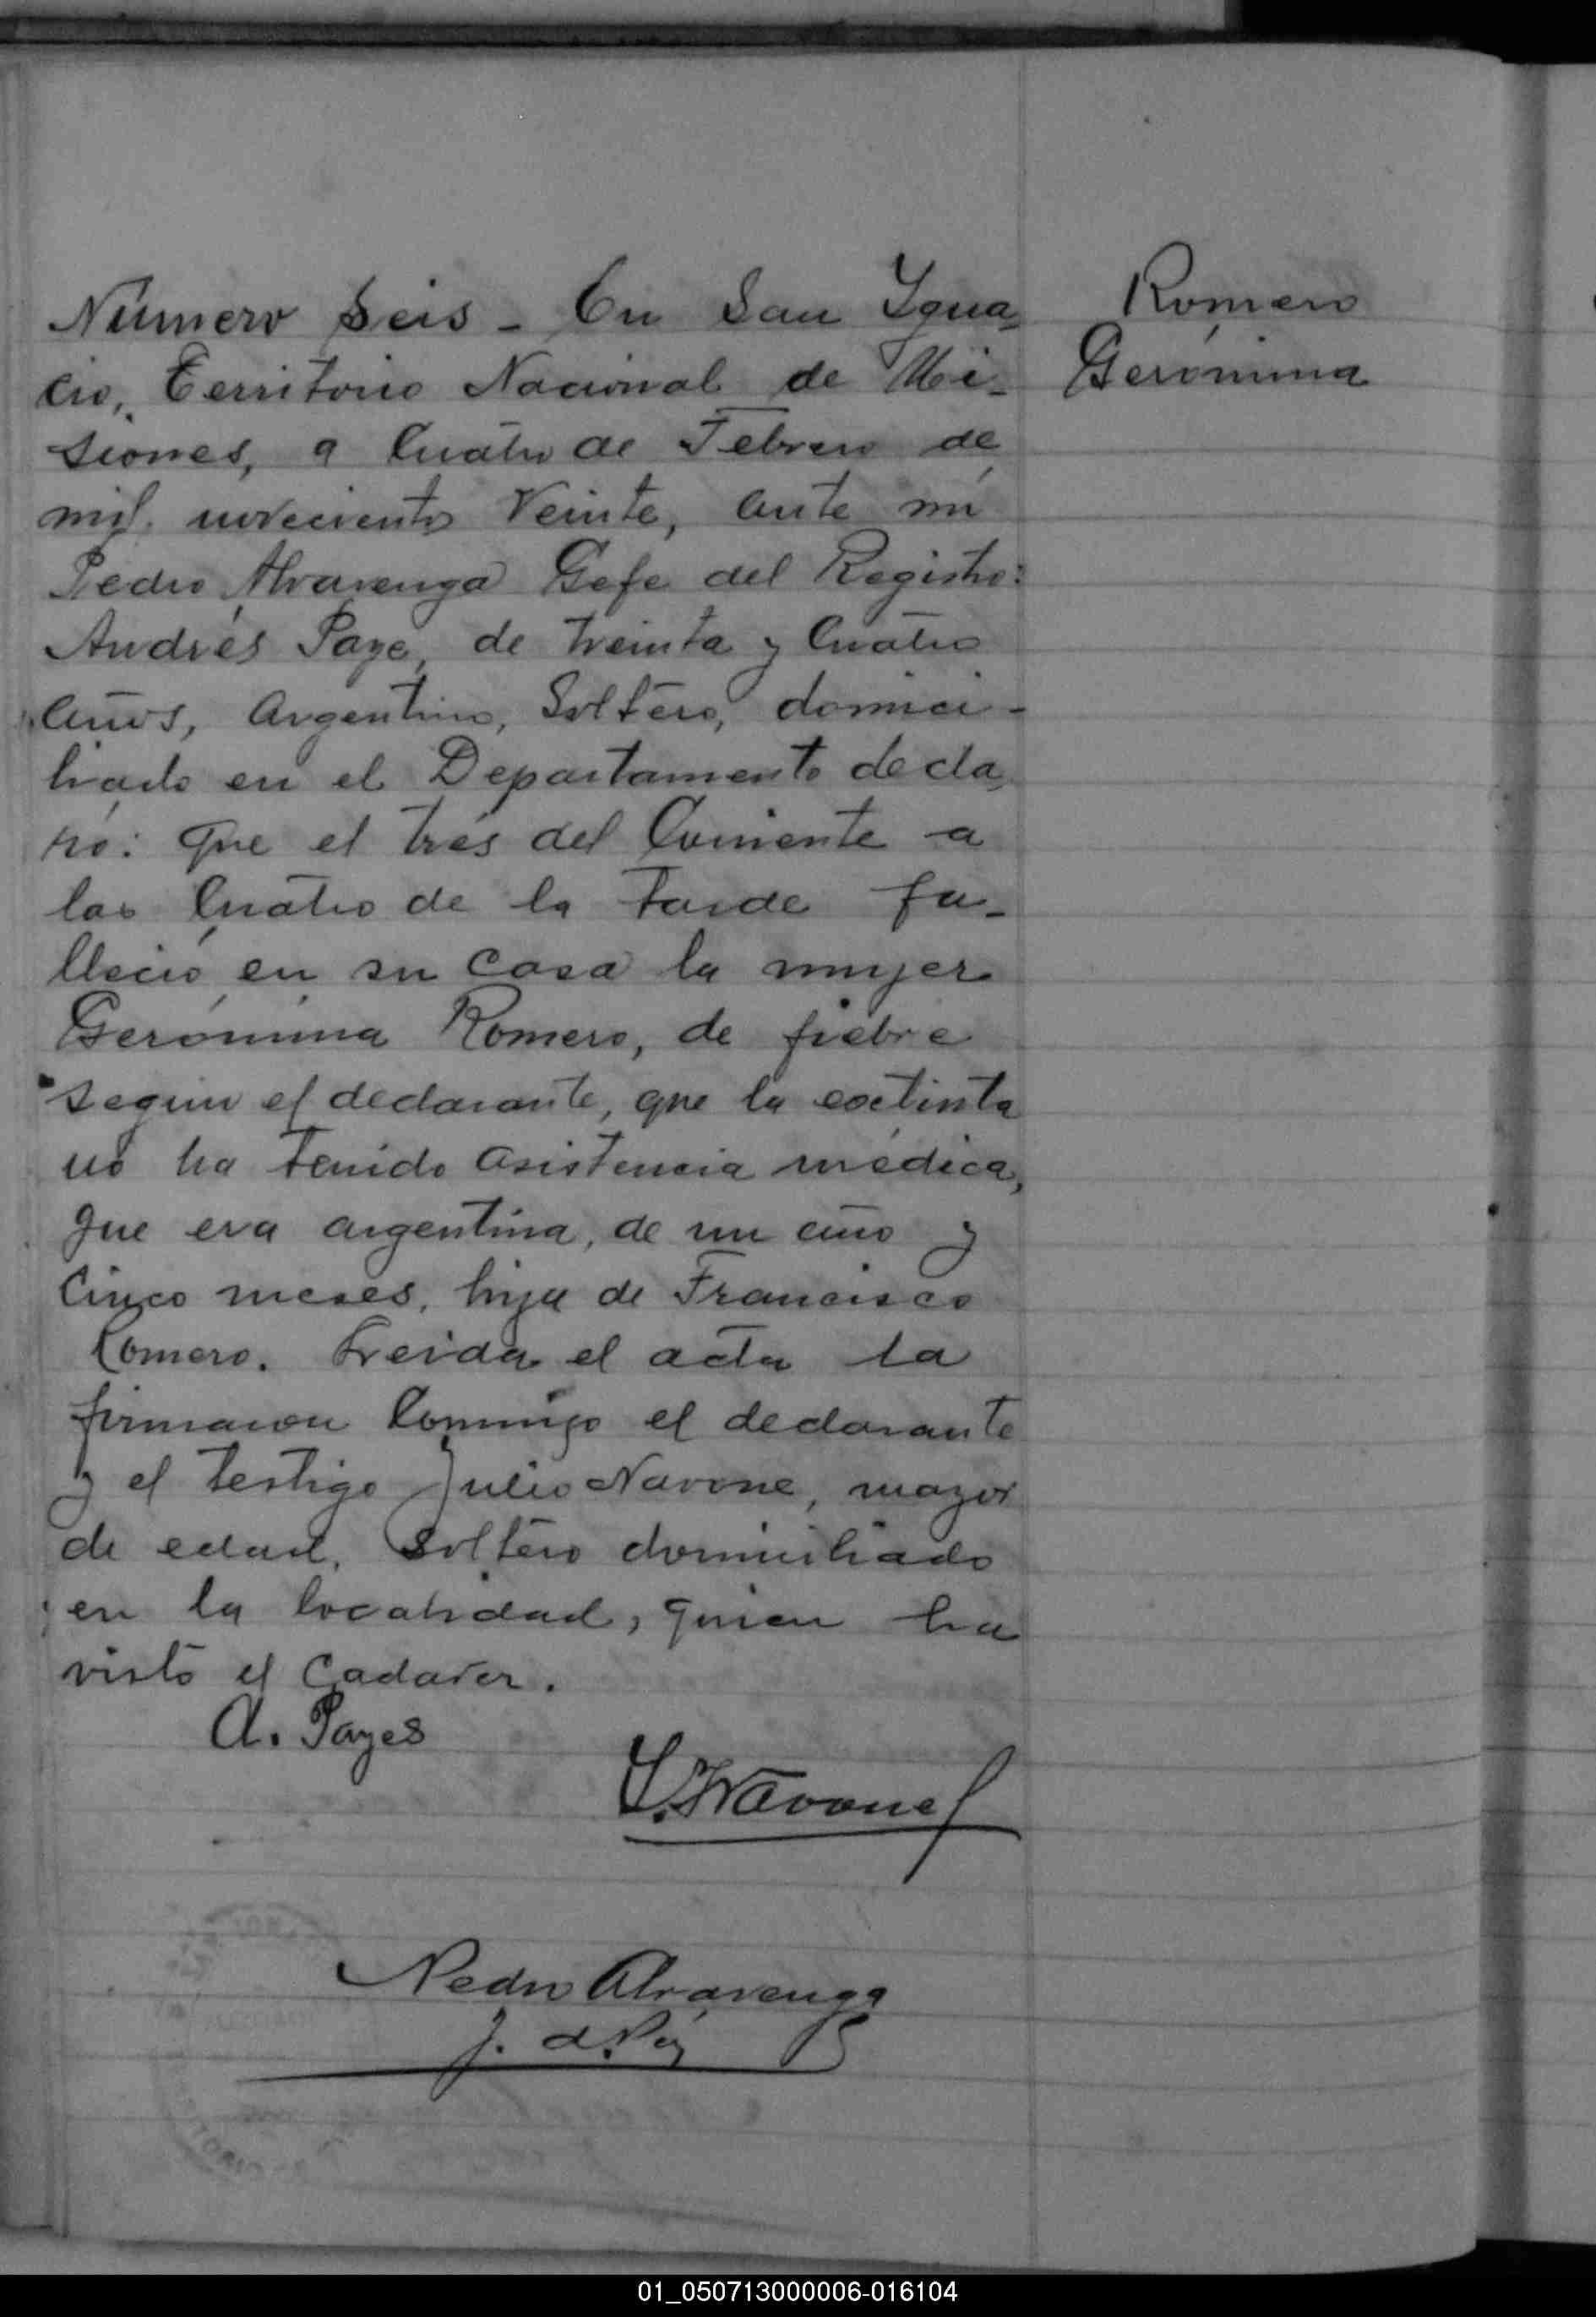 Romero
Gerónima
Número Seis - En San Igna-
cio, Territorio Nacional de Mi-
siones, a Cuatro de Febrero de
mil novecientos Veinte, ante mi
Pedro Alvarenga Gefe del Registro:
Andrés Paye, de treinta y Cuatro
años, Argentino, Soltero, domici-
liado en el Departamento decla-
ró: Que el trés del Corriente a
las Cuatro de la tarde fa-
lleció en su casa la mujer
Gerónima Romero, de fiebre
segun el declarante, que la extinta
no ha tenido asistencia médica,
que era argentina, de un año y
Cinco meses, hija de Francisco
Romero. Leida el acta la
firmaron Conmigo el declarante
y el testigo Julio Navone, mayor
de edad, Soltero domiciliado
en la localidad, quien ha
visto el Cadaver.
A. Payes
Navone
Pedro Alvarenga
J. d.
01_050713000006-016104